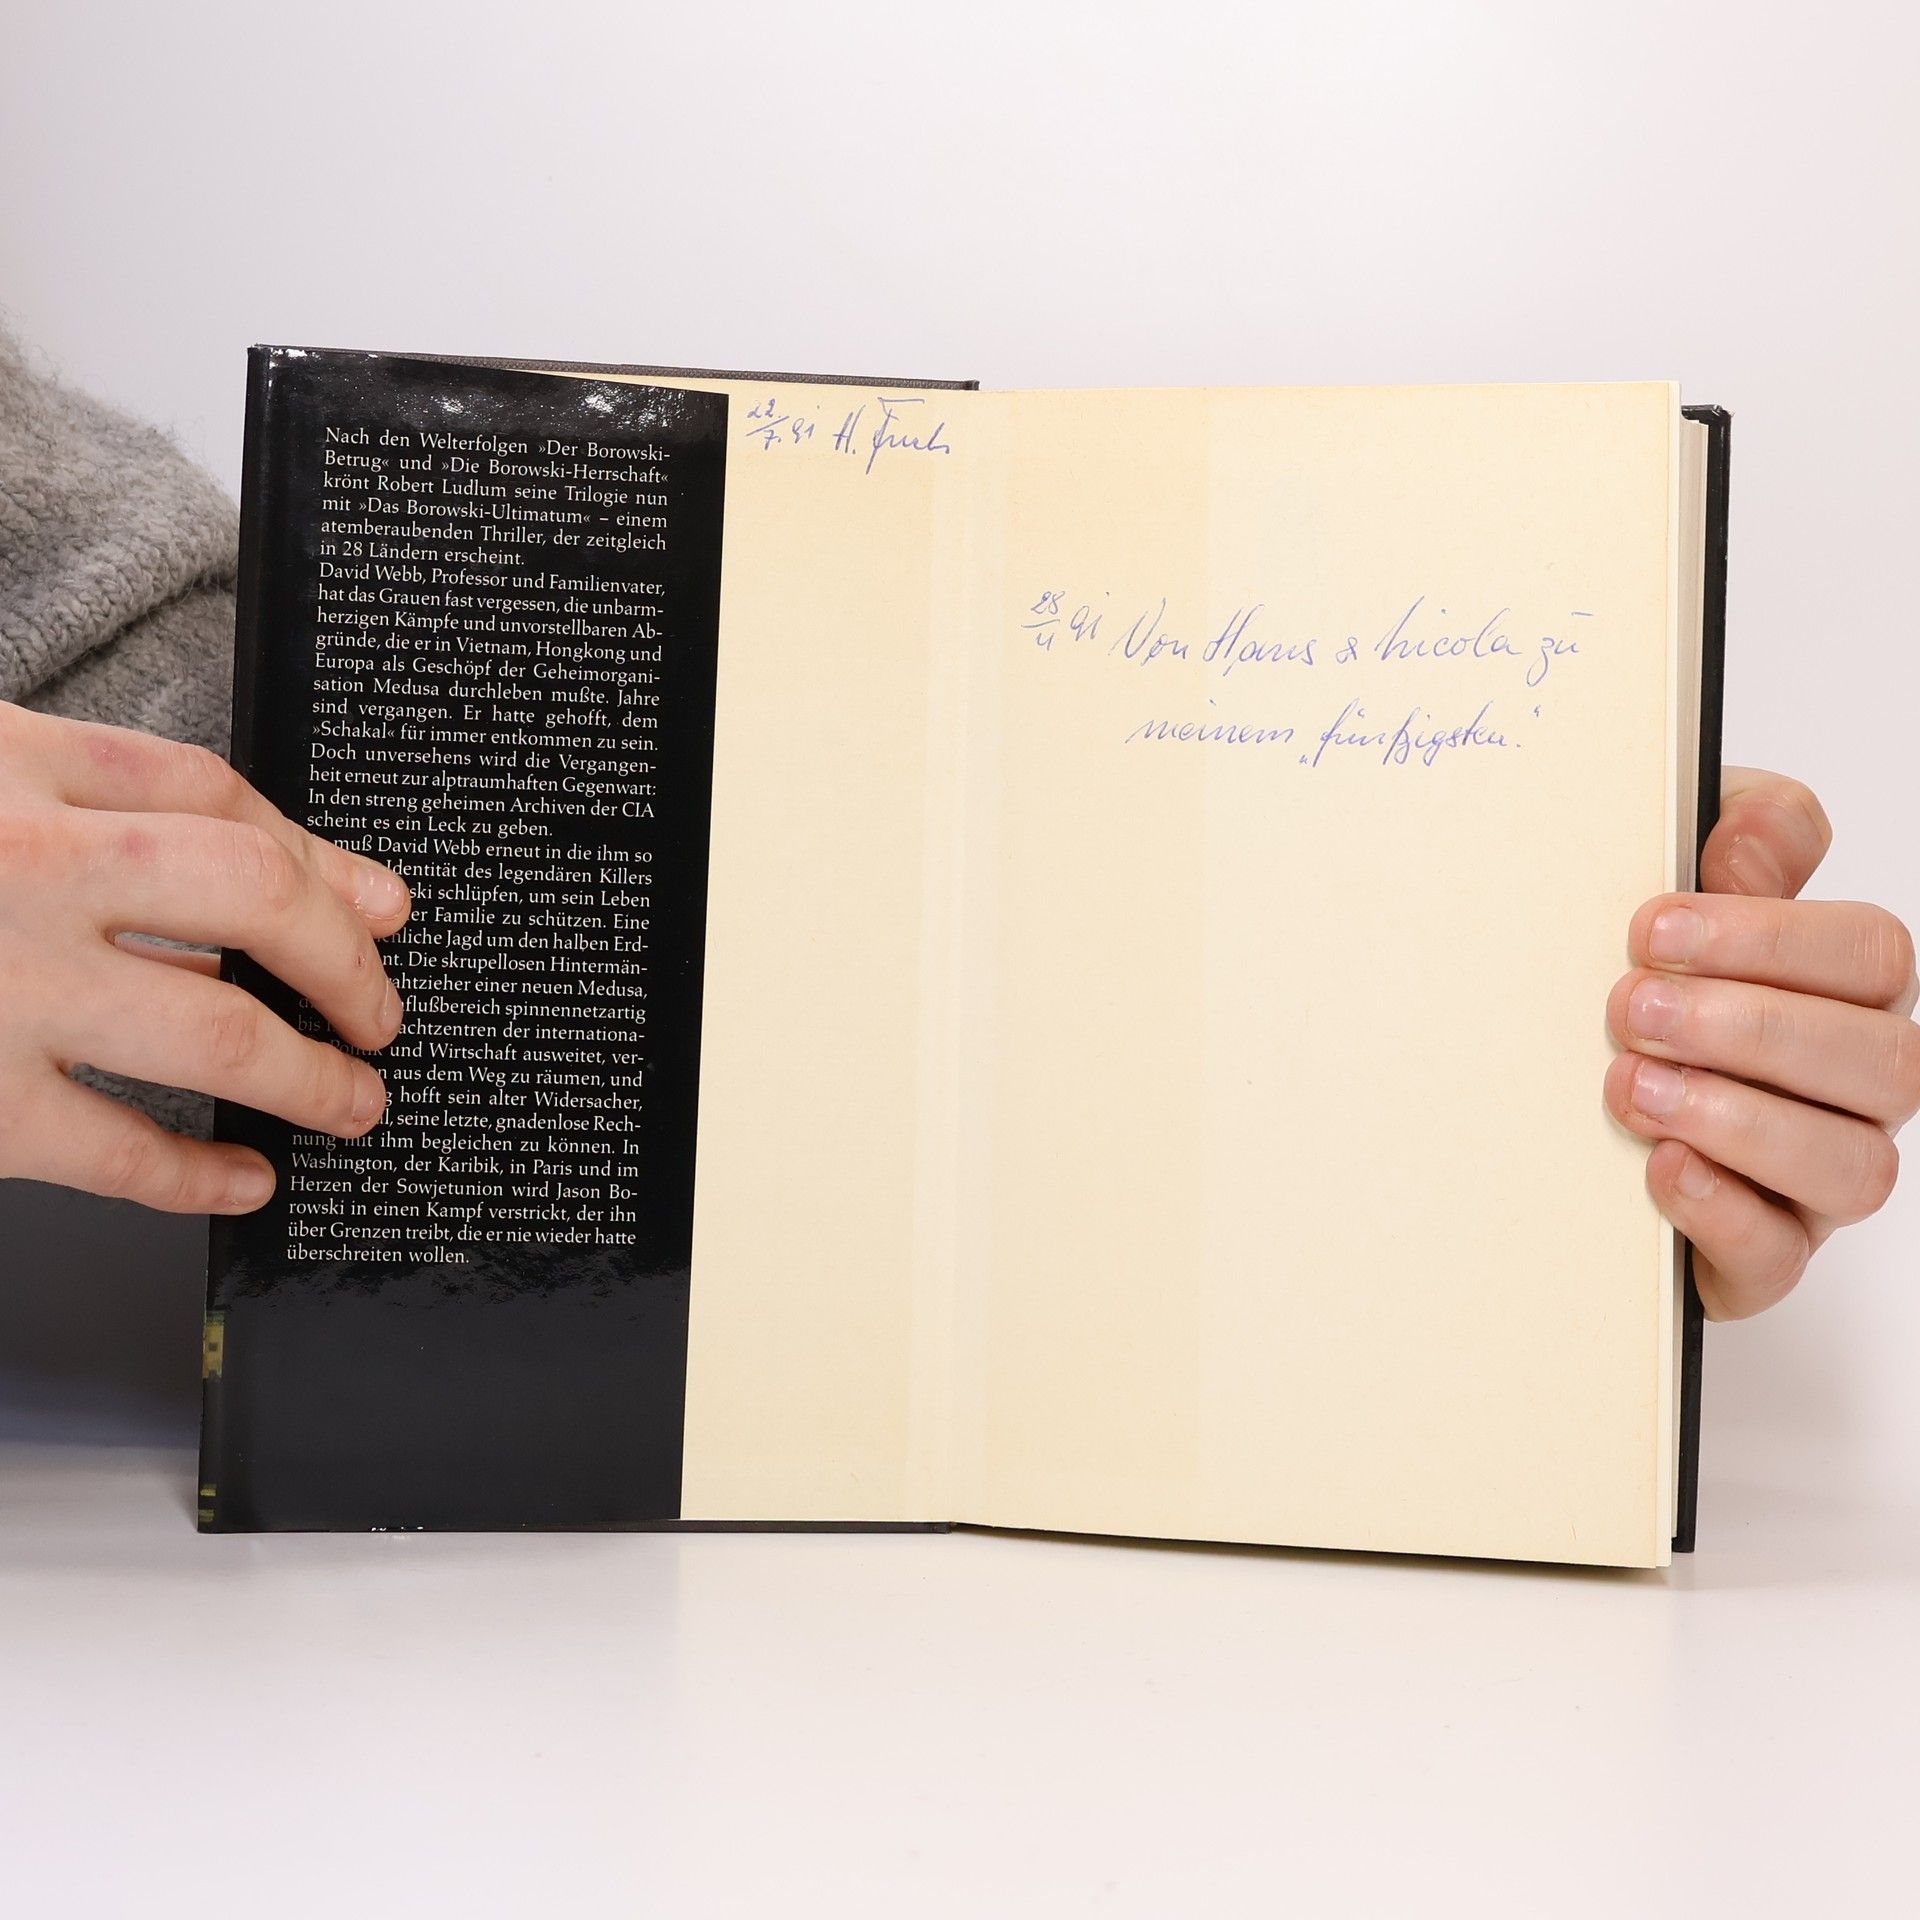 Nach den Welterfolgen »Der Borowski-
Betrug« und »Die Borowski-Herrschaft«
krönt Robert Ludlum seine Trilogie nun
mit »Das Borowski-Ultimatum« – einem
atemberaubenden Thriller, der zeitgleich
in 28 Ländern erscheint.
David Webb, Professor und Familienvater,
hat das Grauen fast vergessen, die unbarm-
herzigen Kämpfe und unvorstellbaren Ab-
gründe, die er in Vietnam, Hongkong und
Europa als Geschöpf der Geheimorgani-
sation Medusa durchleben mußte. Jahre
sind vergangen. Er hatte gehofft, dem
»Schakal« für immer entkommen zu sein.
Doch unversehens wird die Vergangen-
heit erneut zur alptraumhaften Gegenwart:
In den streng geheimen Archiven der CIA
scheint es ein Leck zu geben.
muß David Webb erneut in die ihm so
Identität des legendären Killers
schlüpfen, um sein Leben
Familie zu schützen. Eine
Jagd um den halben Erd-
Die skrupellosen Hintermän-
einer neuen Medusa,
spinnennetzartig
bis der internationa-
Politik und Wirtschaft ausweitet, ver-
aus dem Weg zu räumen, und
hofft sein alter Widersacher,
seine letzte, gnadenlose Rech-
nung mit ihm begleichen zu können. In
Washington, der Karibik, in Paris und im
Herzen der Sowjetunion wird Jason Bo-
rowski in einen Kampf verstrickt, der ihn
über Grenzen treibt, die er nie wieder hatte
überschreiten wollen.
22./7. 91 H. Fuchs
28/4 91 Von Hans & Nicola zu
meinem „fünfzigsten."